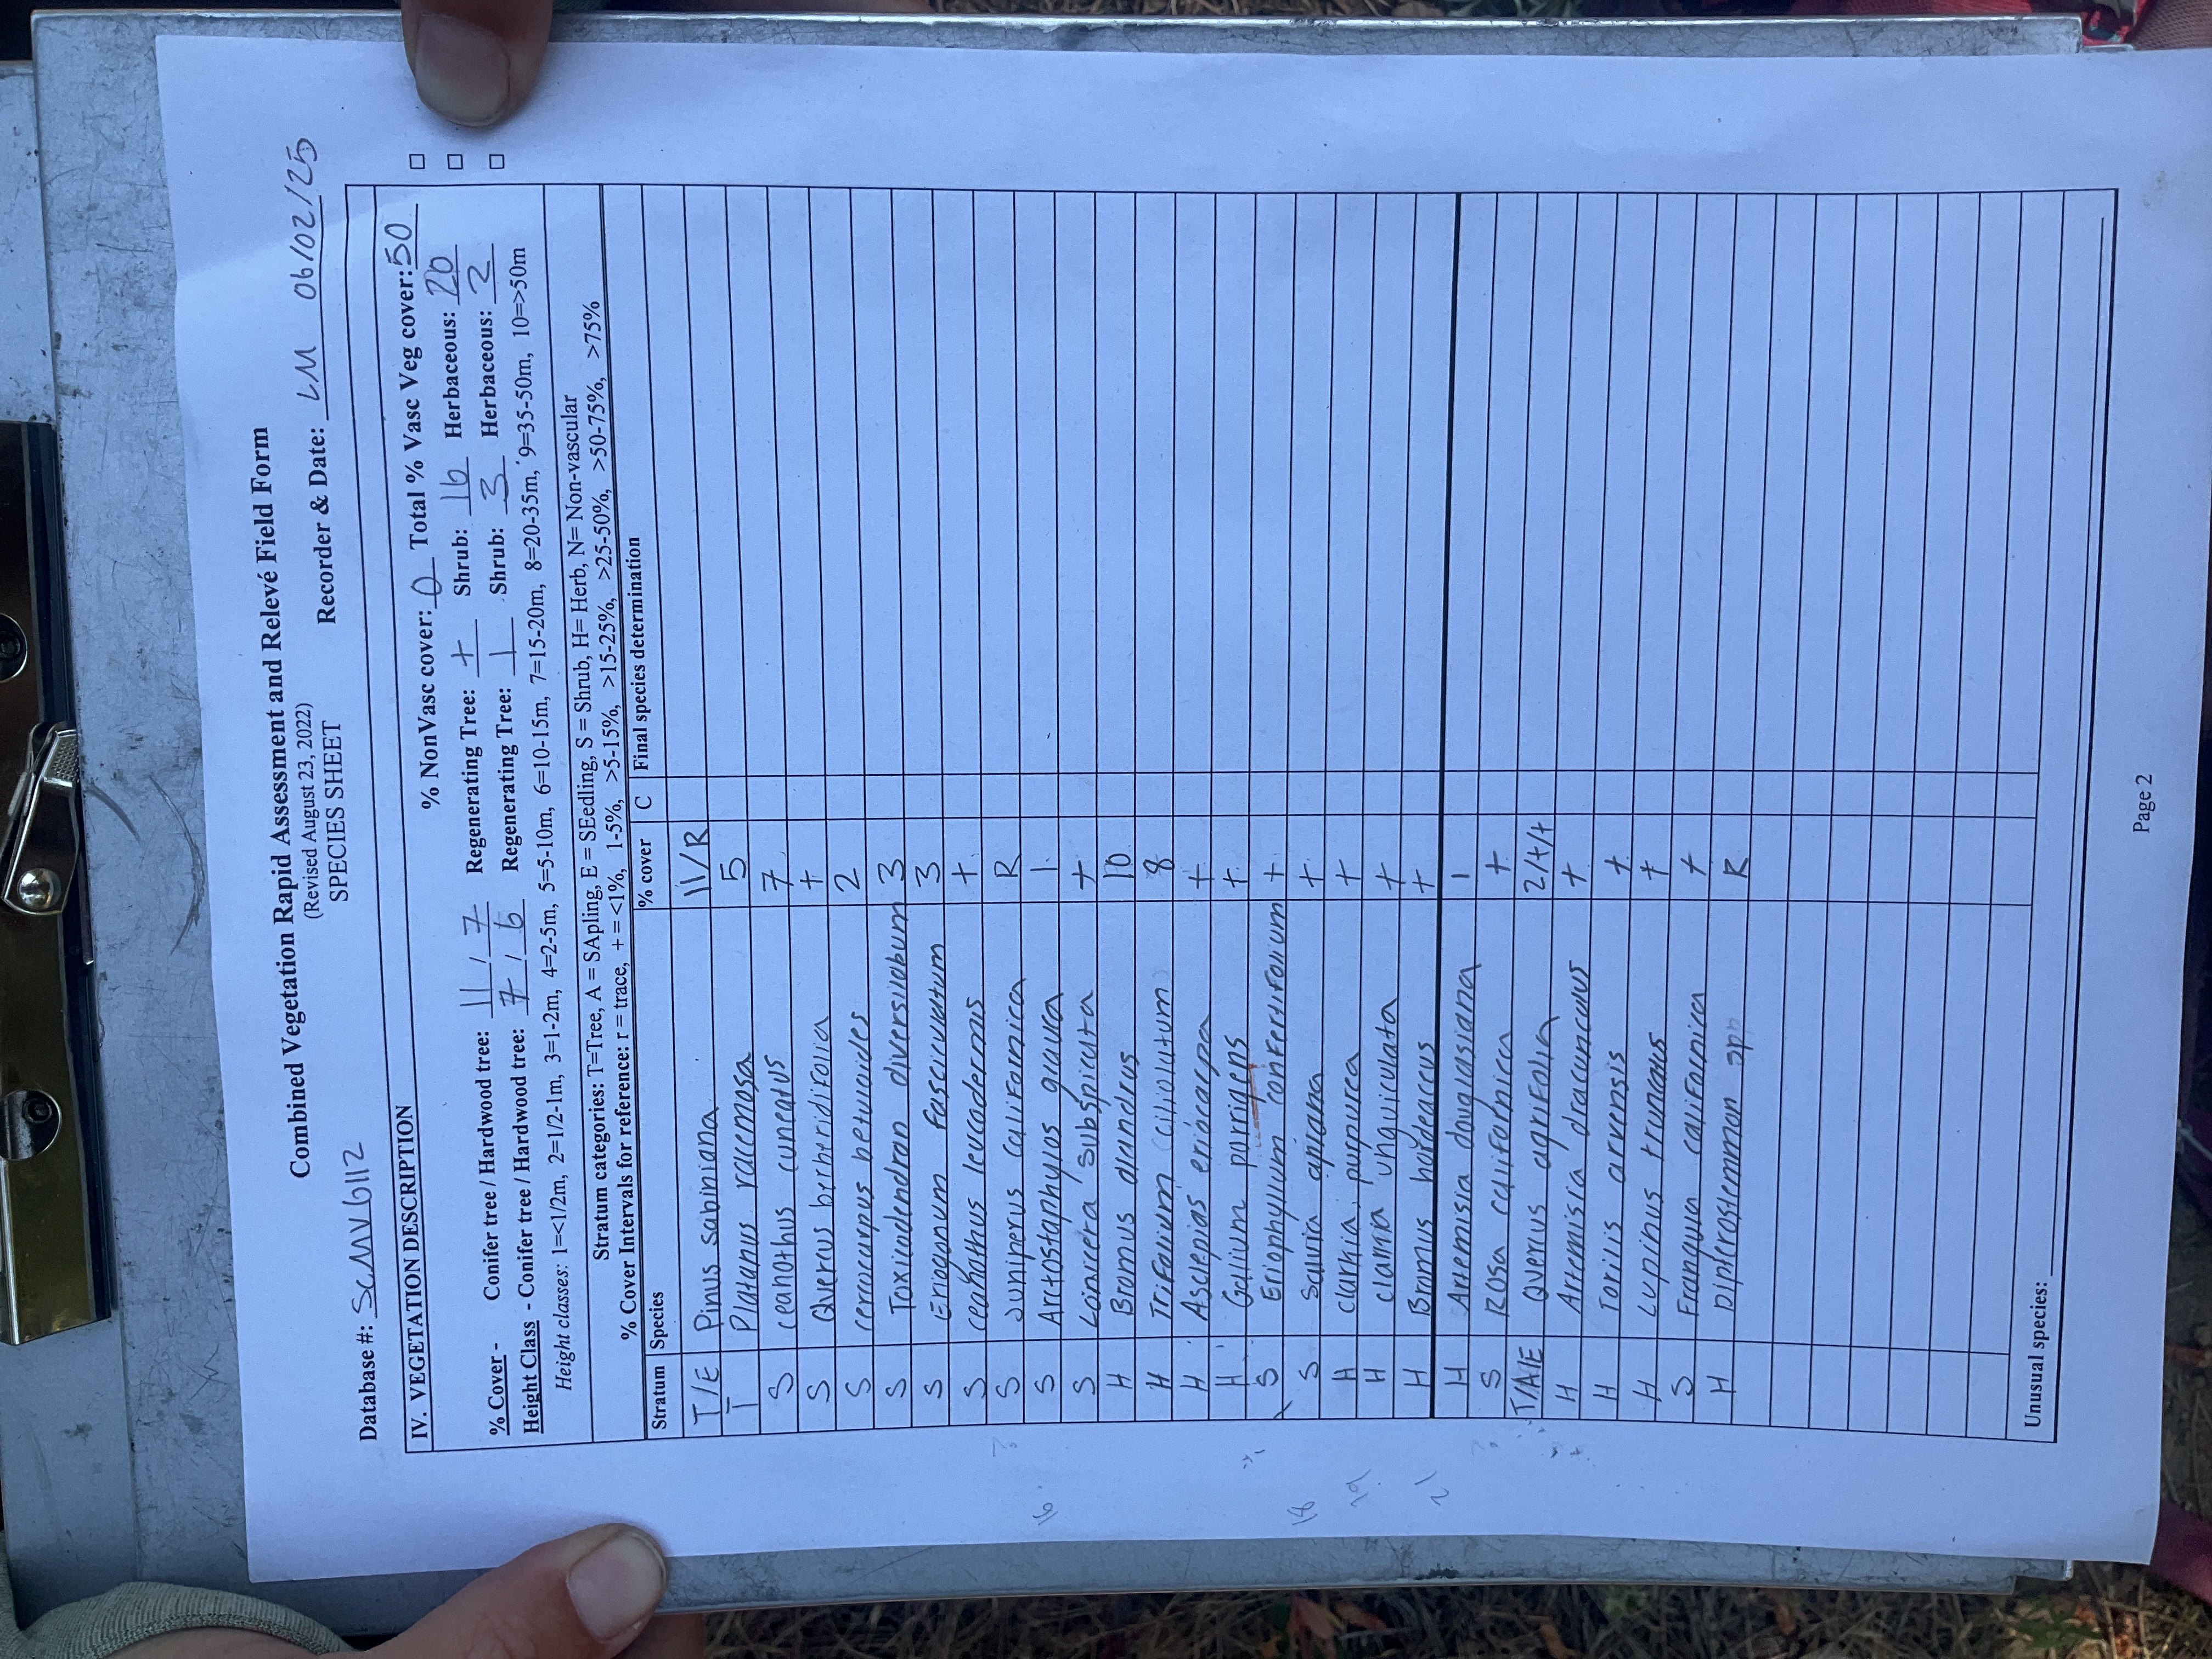 Combined Vegetation Rapid Assessment and Relevé Field Form
(Revised August 23, 2022)
SPECIES SHEET
Database #: SCMV6112 Recorder & Date: LM 06/02/25
IV. VEGETATION DESCRIPTION
% NonVasc cover: 0 Total % Vasc Veg cover: 50
% Cover - Conifer tree / Hardwood tree: 11 / 7 Regenerating Tree: + Shrub: 16 Herbaceous: 20
Height Class - Conifer tree / Hardwood tree: 7 / 6 Regenerating Tree: 1 Shrub: 3 Herbaceous: 2
Height classes: 1=<1/2m, 2=1/2-1m, 3=1-2m, 4=2-5m, 5=5-10m, 6=10-15m, 7=15-20m, 8=20-35m, 9=35-50m, 10=>50m
Stratum categories: T=Tree, A = SApling, E = SEedling, S = Shrub, H= Herb, N= Non-vascular
% Cover Intervals for reference: r = trace, + = <1%, 1-5%, >5-15%, >15-25%, >25-50%, >50-75%, >75%
Stratum Species % cover C Final species determination
T/E Pinus sabiniana 11/R
T Platanus racemosa 5
S ceanothus cuneatus 7
S Quercus berberidifolia +
S cercocarpus betuloides 2
S Toxicodendran diversilobum 3
S Eriogonum fasciculatum 3
S ceanothus leucodermis +
S Juniperus californica R
S Arctostaphylos glauca 1
S Lonicera subspicata +
H Bromus diandrus 10
H Trifolium ciliolutum 8
H Asclepias eriocarpa +
H Galium porrigens +
S Eriophyllum confertiflorium +
S Salvia apiana +
H clarkia purpurea +
H clarkia unguiculata +
H Bromus hordeaceus +
H Artemisia douglasiana 1
S Rosa californica +
T/A/E Quercus agrifolia 2/+/+
H Artemisia dracunculus +
H Torilis arvensis +
H Lupinus truncatus +
S Frangula californica +
H Dipterostemmon spp R
16
18
21
Unusual species:
Page 2